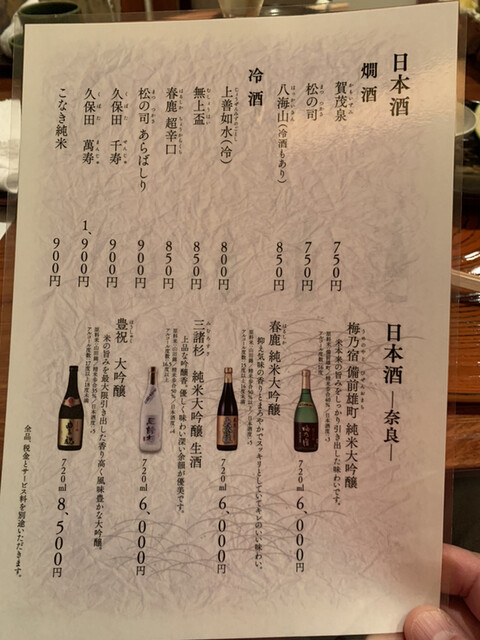 日本酒
燗酒
賀茂泉 750円
松の司 750円
八海山(冷酒もあり) 850円
冷酒
上善如水(冷) 800円
無上盃 850円
春鹿 超辛口 850円
松の司 あらばしり 900円
久保田 千寿 900円
久保田 萬寿 1、900円
こなき純米 900円
日本酒―奈良―
梅乃宿 備前雄町 純米大吟醸
米本来の旨みをしっかり引き出した味わいです。
720ml 6,000円
春鹿 純米大吟醸
抑え気味の香りとまろやかでスッキリとしていてキレのいい味わい。
720ml 6,000円
三諸杉 純米大吟醸 生酒
上品な吟醸香、優しく味わい深い余韻が優美です。
720ml 6,000円
豊祝 大吟醸
米の旨みを最大限引き出した香り高く、風味豊かな大吟醸。
720ml 8,500円
全品、税金とサービス料を別途いただきます。